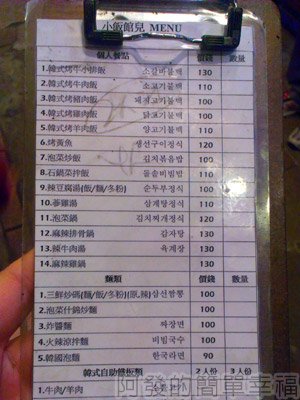 小飯館兒 MENU
個人餐點 價錢 數量
1.韓式烤牛小排飯 소갈비볼백 130
2.韓式烤牛肉飯 소고기볼백 100
3.韓式烤豬肉飯 돼지고기볼백 100
4.韓式烤雞肉飯 닭고기볼백 100
5.韓式烤羊肉飯 양고기볼백 110
6.烤黃魚 생선구이정식 120
7.泡菜炒飯 김치볶음밥 100
8.石鍋菜拌飯 돌솥비빔밥 110
9.辣豆腐湯(飯/麵/冬粉) 순두부정식 100
10.蔘雞湯 삼계탕정식 110
11.泡菜鍋 김치찌개정식 120
12.麻辣排骨鍋 감자탕 130
13.辣牛肉湯 육계장 130
14.麻辣雞鍋 130
麵類 價錢 數量
1.三鮮炒碼(麵/飯/冬粉)(原,辣) 삼선짬뽕 100
2.泡菜什錦炒麵 100
3.炸醬麵 짜장면 100
4.火辣涼拌麵 비빔국수 100
5.韓國泡麵 한국라면 90
韓式自助鐵板類 2人份 3人份
1.牛肉/羊肉
阿發的簡單幸福